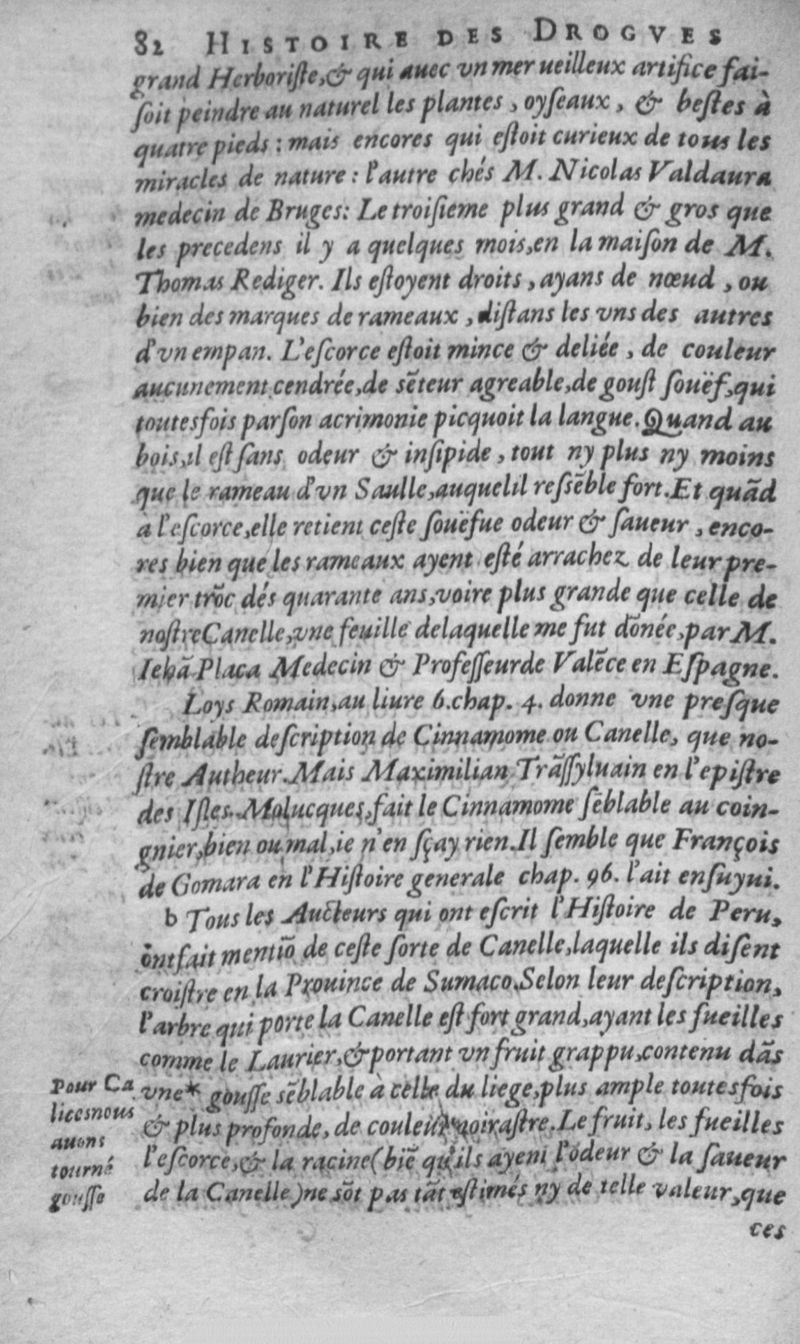 82 HISTOIRE DES DROGVES
grand Herboriſte,& qui auec vn mer ueilleux artifice fai-
ſoit peindre au naturel les plantes , oyſeaux , & beſtes à
quatre pieds : mais encores qui eſtoit curieux de tous les
miracles de nature : l'autre chés M. Nicolas Valdaura
medecin de Bruges: Le troiſieme plus grand & gros que
les precedens il y a quelques mois,en la maiſon de M.
Thomas Rediger. Ils eſtoyent droits , ayans de nœud , ou
bien des marques de rameaux , diſtans les vns des autres
d'vn empan. L'eſcorce eſtoit mince & deliée , de couleur
aucunement cendrée,de sẽteur agreable,de gouſt ſouëf,qui
toutesfois parſon acrimonie picquoit la langue. Quand au
bois,il eſt ſans odeur & inſipide , tout ny plus ny moins
que le rameau d'vn Saulle,auquelil reſsẽble fort. Et quãd
à l'eſcorce,elle retient ceſte ſouëfue odeur & ſaueur , enco-
res bien que les rameaux ayent eſté arrachez de leur pre-
mier trõc dés quarante ans,voire plus grande que celle de
noſtreCanelle,vne feuille delaquelle me fut dõnée,par M.
Iehã Placa Medecin & Profeſſeurde Valẽce en Eſpagne.
Loys Romain,au liure 6.chap. 4. donne vne preſque
ſemblable deſcription de Cinnamome ou Canelle, que no-
ſtre Autheur.Mais Maximilian Trãſſyluain en l'epiſtre
des Iſles Molucques,fait le Cinnamome sẽblable au coin-
gnier,bien ou mal,ie n'en ſçay rien.Il ſemble que François
de Gomara en l'Hiſtoire generale chap. 96. l'ait enſuyui.
b Tous les Aucteurs qui ont eſcrit l'Hiſtoire de Peru,
ont fait mentiõ de ceſte ſorte de Canelle,laquelle ils diſent
croiſtre en la Prouince de Sumaco.Selon leur deſcription,
l'arbre qui porte la Canelle eſt fort grand,ayant les fueilles
comme le Laurier,& portant vn fruit grappu,contenu dãs
vne* gouſſe sẽblable à celle du liege,plus ample toutesfois
& plus profonde, de couleur noiraſtre.Le fruit, les fueilles
l'eſcorce,& la racine(biẽ qu'ils ayent l'odeur & la ſaueur
de la Canelle)ne sõt pas tãt eſtimés ny de telle valeur,que
ces
Pour Ca
lices nous
auons
tourné
gouſſe